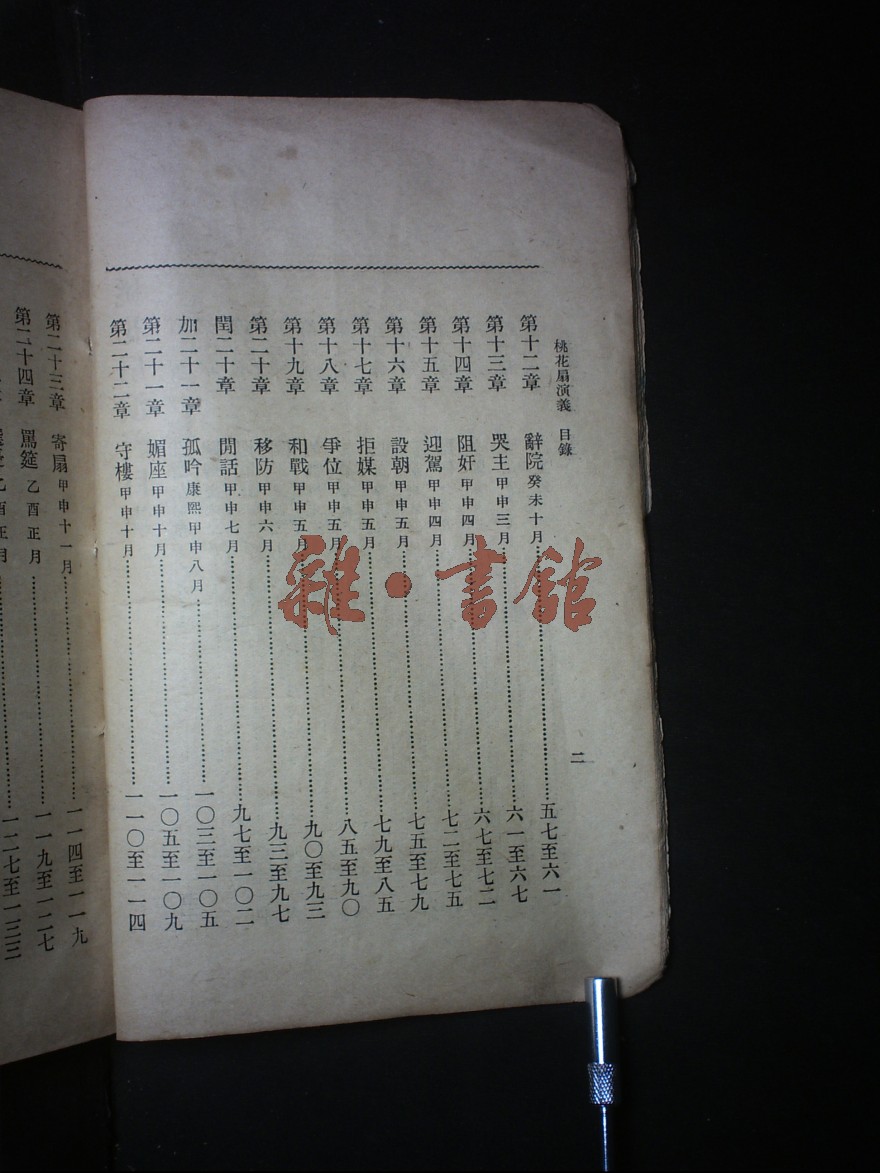 桃花扇演義 目錄
二
第十二章 辭院 癸未十月 五七至六一
第十三章 哭主 甲申三月 六一至六七
第十四章 阻奸 甲申四月 六七至七二
第十五章 迎駕 甲申四月 七二至七五
第十六章 設朝 甲申五月 七五至七九
第十七章 拒媒 甲申五月 七九至八五
第十八章 爭位 甲申五月 八五至九〇
第十九章 和戰 甲申五月 九〇至九三
第二十章 移防 甲申六月 九三至九七
閏二十章 閒話 甲申七月 九七至一〇二
加二十一章 孤吟 康熙甲申八月 一〇三至一〇五
第二十一章 媚座 甲申十月 一〇五至一〇九
第二十二章 守樓 甲申十月 一一〇至一一四
第二十三章 寄扇 甲申十一月 一一四至一一九
第二十四章 罵筵 乙酉正月 一一九至一二七
乙酉正月 一二七至一三三
雜·書館